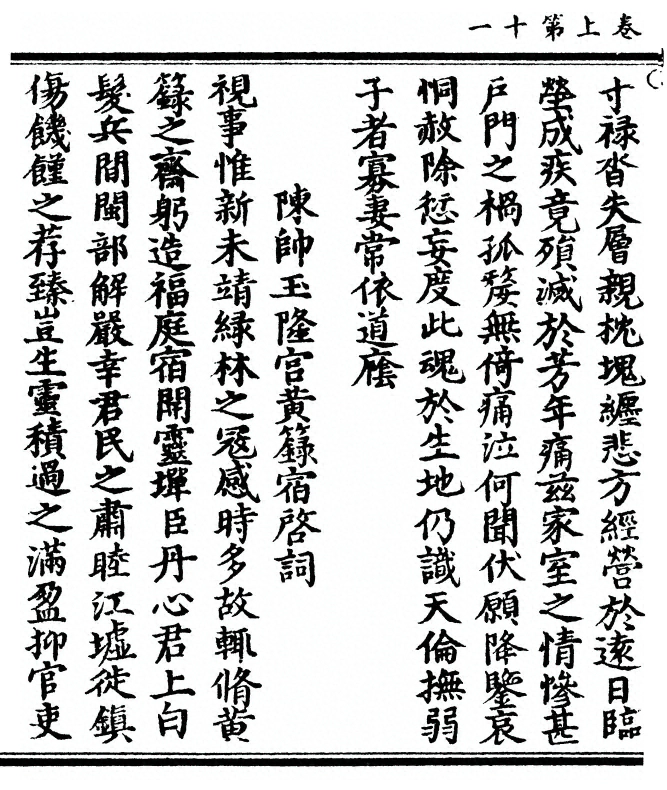 卷上第十一
寸禄沓失層親枕塊纏悲方經營於逺日臨
塋成疾竟殞滅於芳年痛兹家室之情慘甚
戸門之禍孤嫠無倚痛泣何聞伏願降鑒哀
恫赦除愆妄度此魂於生地仍識天倫撫弱
子者寡妻常依道廕
陳帥玉隆宫黄籙宿啓詞
視事惟新未靖緑林之冦感時多故輙脩黄
籙之齋躬造福庭宿開靈墠臣丹心君上白
髮兵間閩部解嚴幸君民之肅睦江墟徙鎮
傷饑饉之荐臻豈生靈積過之滿盈抑官吏